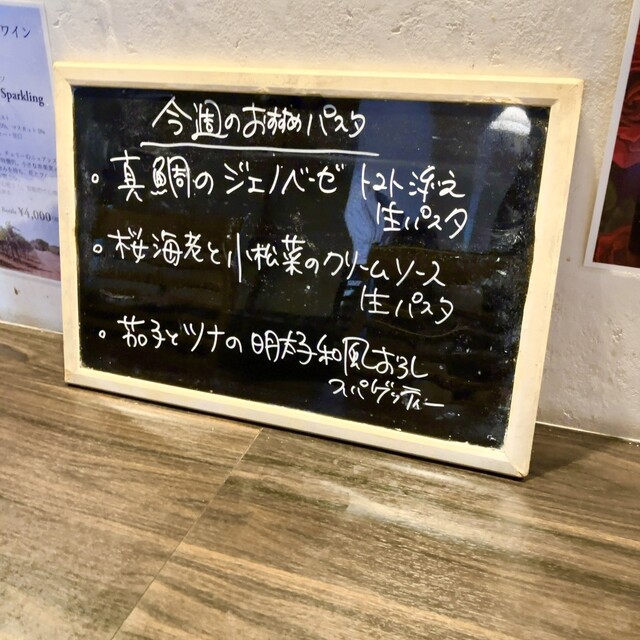 今週のおすすめパスタ
• 真鯛のジェノベーゼ トマト添え
生パスタ
• 桜海老と小松菜のクリームソース
生パスタ
• 茄子とツナの明太子和風おろし
スパゲッティー
ワイン
Sparkling
¥4,000